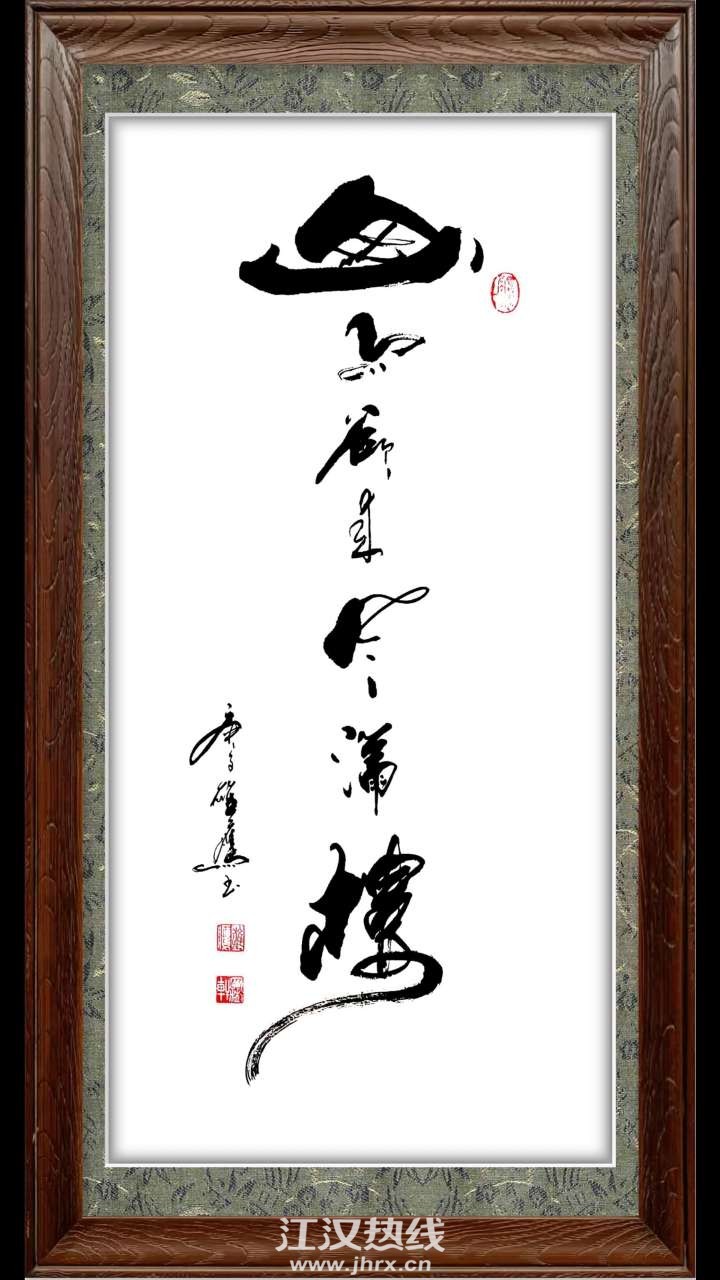 山雨欲来风滿樓
江汉热线
www.jhrx.cn